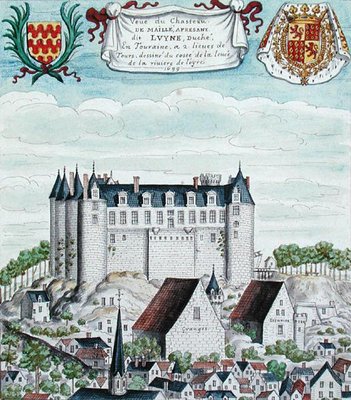 Veue du Chasteau
DE MAILLÉ, APRESENT
dit LUYNE, Duché,
En Touraine, a 2 lieues de
Tours, dessiné du costé de la levée
de la riviere de loyre
1699
Granges